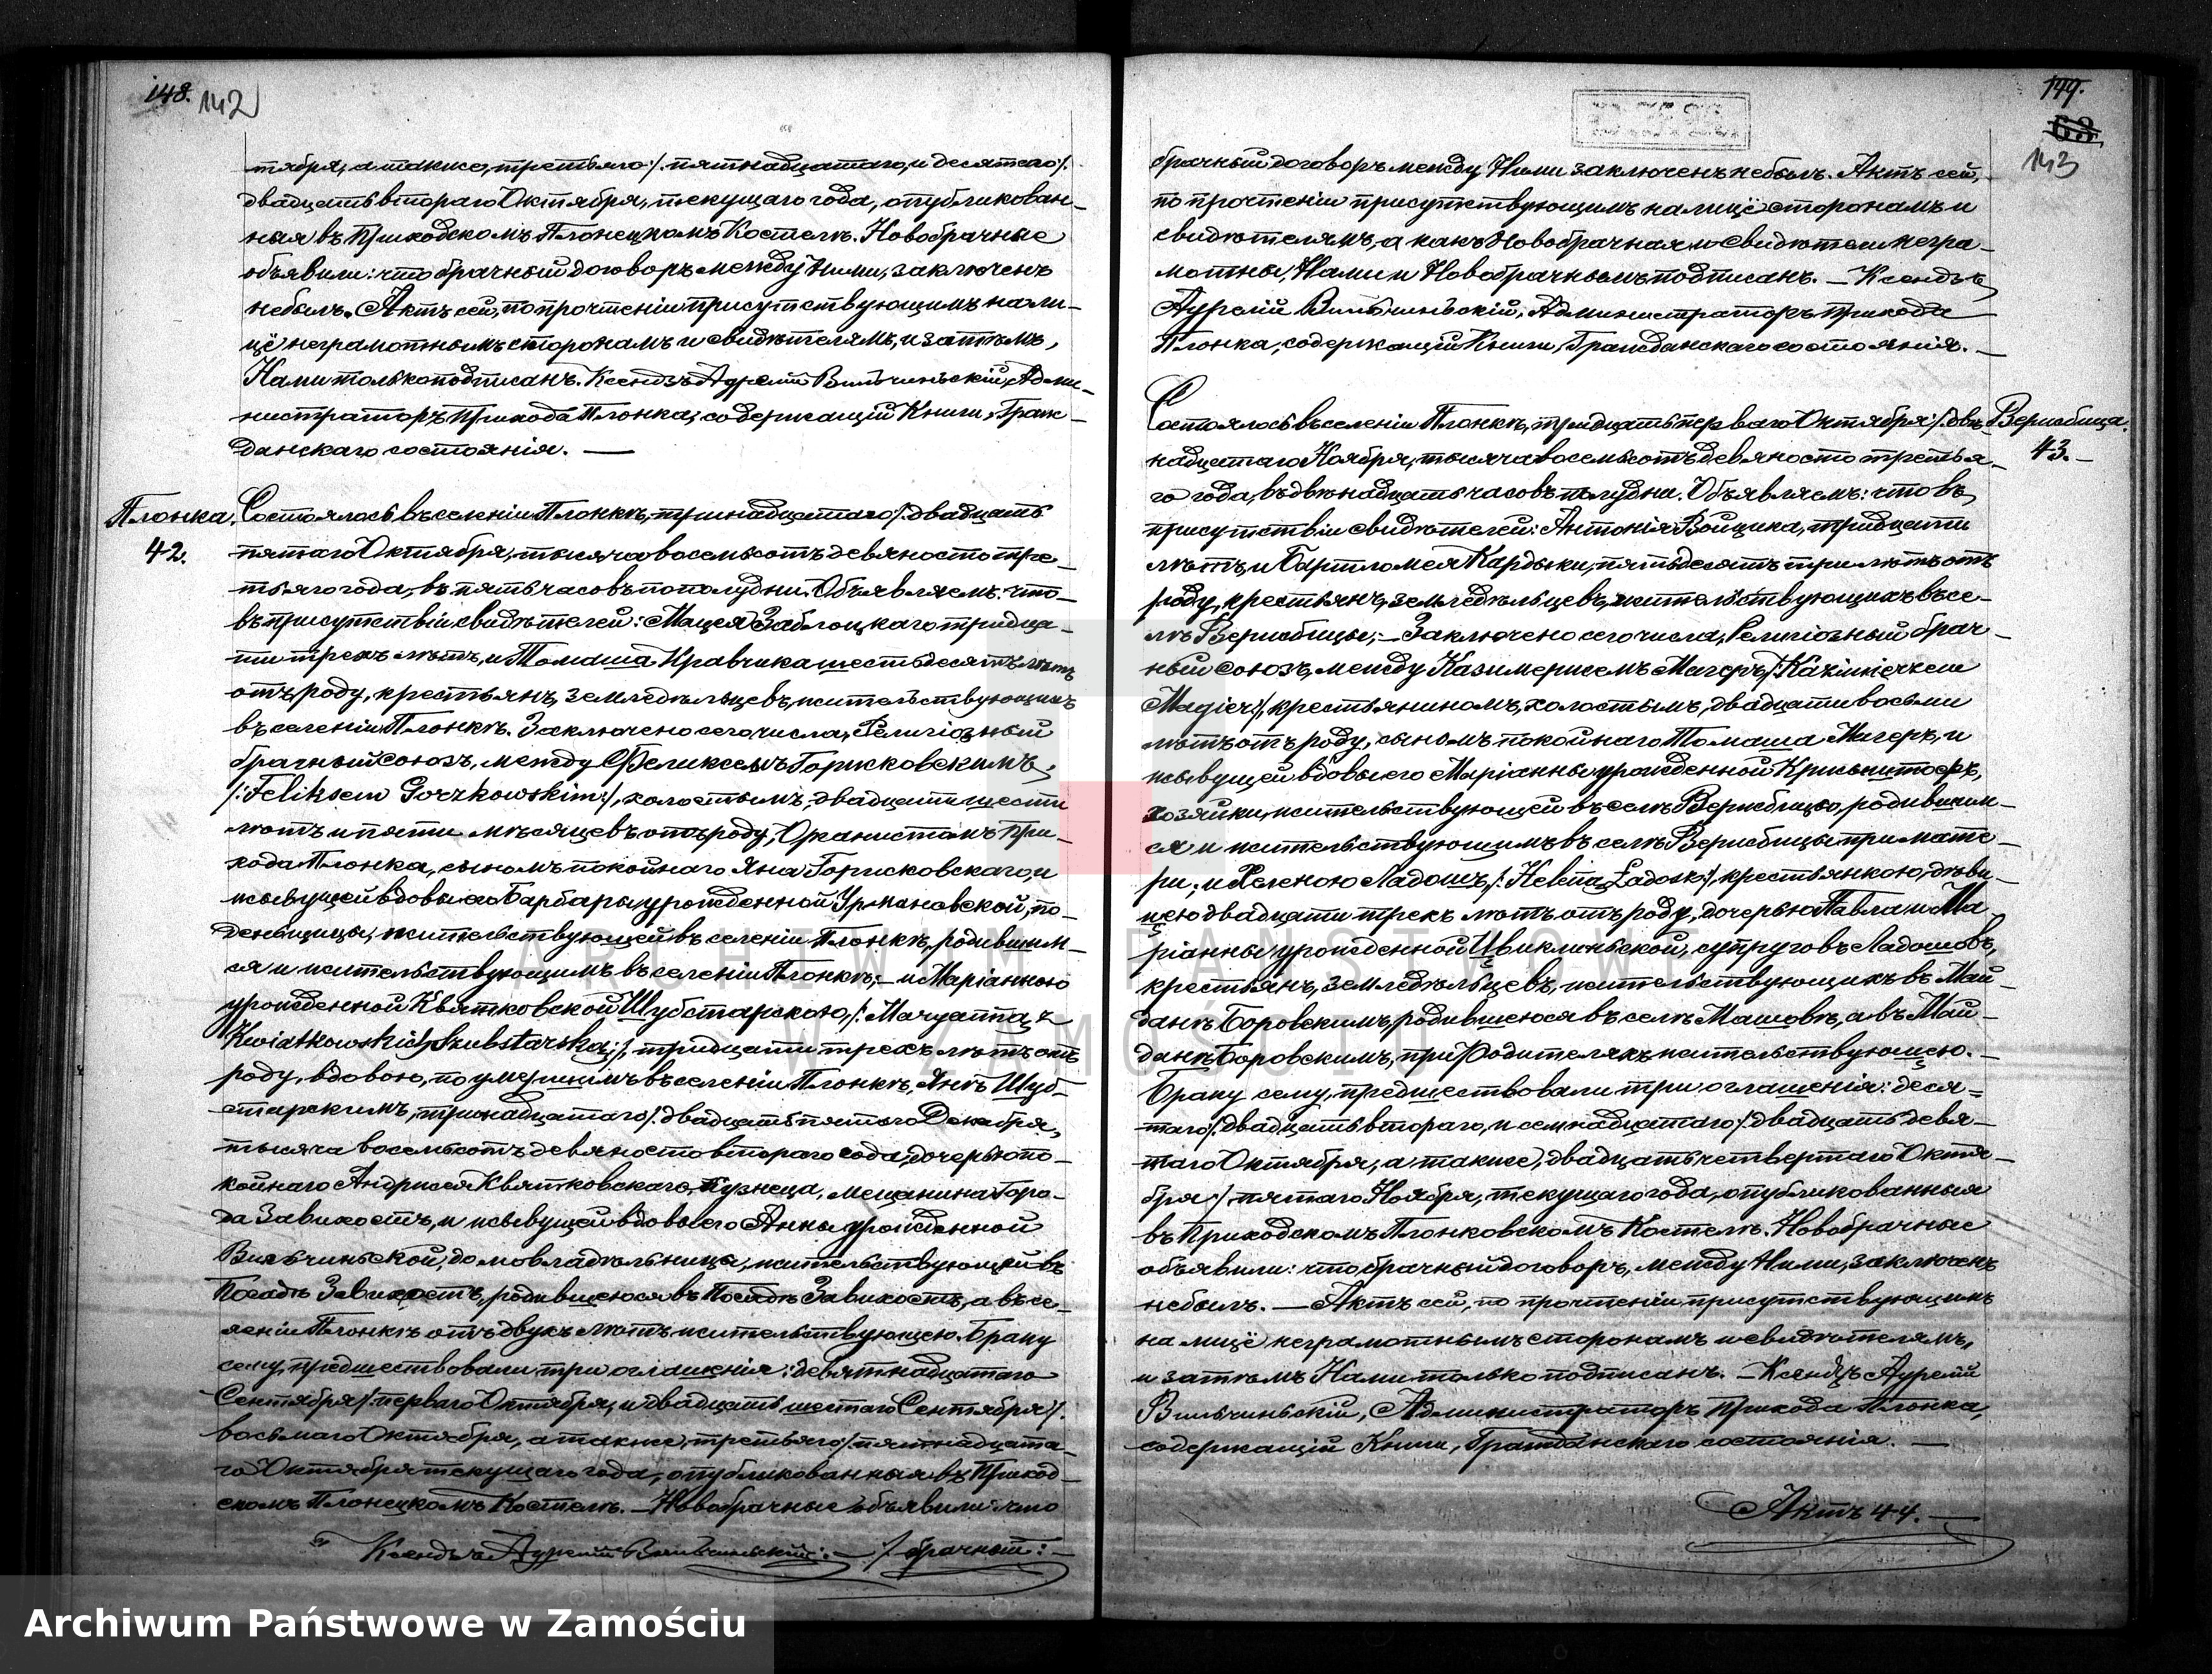 148.
142
тября, а также, третьяго /: пятнадцатаго, и десятаго /:
двадцать втораго Октября, текущаго года, опубликован-
ная въ Приходскомъ Плонецкомъ Костелѣ. Новобрачные
объявили: что брачный договоръ между Ними, заключенъ
небылъ. Актъ сей, по прочтеніи присутствующимъ на ли-
цё неграмотнымъ сторонамъ и свидѣтелямъ, и затѣмъ,
Нами только подписанъ. Ксендзъ Аурелій Вильчиньскій, Адми-
нистраторъ Прихода Плонка, содержащій Книги, Граж-
данскаго состоянія. —
Плонка.
42.
Состоялось въ селеніи Плонкѣ, тринадцатаго /: двадцать
пятаго Октября, тысяча восемьсотъ девяносто тре-
тьяго года, въ пять часовъ пополудни. Объявляемъ: что
въ присутствіи свидѣтелей: Мацея Заблоцкаго тридца-
ти трехъ лѣтъ, и Томаша Кравчика шестьдесятъ лѣтъ
отъ роду, крестьянъ, земледѣльцевъ, жительствующихъ
въ селеніи Плонкѣ. Заключено сего числа, Религіозный
брачный союзъ, между Феликсемъ Горжковскимъ,
/: Feliksem Gorzkowskim :/, холостымъ, двадцати шести
лѣтъ и пяти мѣсяцевъ отъ роду, Органистомъ При-
хода Плонка, сыномъ покойнаго Яна Горжковскаго, и
живущей вдовы его Барбары урожденной Урбановской, по-
денщицы, жительствующей въ селеніи Плонкѣ, родившим-
ся и жительствующимъ въ селеніи Плонкѣ; — и Маріанною
урожденной Квятковской Шубстарскою, /: Maryanną z
Kwiatkowskich Szubstarską :/, тридцати трехъ лѣтъ отъ
роду, вдовою, по умершимъ въ селеніи Плонкѣ, Янѣ Шуб-
старскимъ, тринадцатаго /: двадцать пятаго Декабря,
тысяча восемьсотъ девяносто втораго года, дочерью по-
койнаго Андржея Квятковскаго, Кузнеца, мещанина Горо-
да Завихостъ, и живущей вдовы его Анны урожденной
Вильчиньской, домовладѣльницы, жительствующей въ
Посадѣ Завихостъ, родившеюся въ Посадѣ Завихостъ, а въ се-
леніи Плонкѣ отъ двухъ лѣтъ жительствующею. Браку
сему, предшествовали три оглашенія: девятнадцатаго
Сентября /: перваго Октября, и двадцать шестаго Сентября /:
восьмаго Октября, а также, третьяго /: пятнадцата-
го Октября текущаго года, опубликованная въ Приход-
скомъ Плонецкомъ Костелѣ. — Новобрачные объявили: что
Ксендзъ Аурелій Вильчиньскій: — /: брачный: —
149.
63
143
брачный договоръ между Ними заключенъ небылъ. Актъ сей,
по прочтеніи присутствующимъ на лицё сторонамъ и
свидѣтелямъ, а какъ Новобрачная и Свидѣтели негра-
мотны, Нами и Новобрачнымъ подписанъ. — Ксендзъ
Аурелій Вильчиньскій, Администраторъ Прихода
Плонка, содержащій Книги, Гражданскаго состоянія. —
Вержбица.
43. —
Состоялось въ селеніи Плонкѣ, тридцать перваго Октября /: двѣ-
надцатаго Ноября, тысяча восемьсотъ девяносто третья-
го года, въ двѣнадцать часовъ полудни. Объявляемъ: что въ
присутствіи свидѣтелей: Антонія Войцика, тридцати
лѣтъ, и Бартломея Кардыки, пятьдесятъ три лѣтъ отъ
роду, крестьянъ, земледѣльцевъ, жительствующихъ въ се-
лѣ Вержбицы, — Заключено сего числа, Религіозный брач-
ный союзъ, между Казимержемъ Магеръ, /: Kazimierzem
Magier :/, крестьяниномъ, холостымъ, двадцати восьми
лѣтъ отъ роду, сыномъ покойнаго Томаша Магеръ, и
живущей вдовы его Маріанны урожденной Крыштофъ,
хозяйки, жительствующей въ селѣ Вержбицы, родившим-
ся и жительствующимъ въ селѣ Вержбицы при мате-
ри; и Хеленою Ладошъ, /: Heleną Ładosz :/, крестьянкою, дѣви-
цею двадцати трехъ лѣтъ отъ роду, дочерью Павла и Ма-
ріанны урожденной Цвиклиньской, супруговъ Ладошовъ,
крестьянъ, земледѣльцевъ, жительствующихъ въ Май-
данѣ Боровскимъ, родившеюся въ селѣ Машовѣ, а въ Май-
данѣ Боровскимъ, при Родителяхъ жительствующею. —
Браку сему, предшествовали три оглашенія: деся-
таго /: двадцать втораго, и семнадцатаго /: двадцать девя-
таго Октября, а также, двадцать четвертаго Октя-
бря /: пятаго Ноября, текущаго года, опубликованныя
въ Приходскомъ Плонковскомъ Костелѣ. Новобрачные
объявили: что брачный договоръ, между Ними, заключенъ
небылъ. — Актъ сей, по прочтеніи присутствующимъ
на лицё неграмотнымъ сторонамъ и свидѣтелямъ,
и затѣмъ Нами только подписанъ. — Ксендзъ Аурелій
Вильчиньскій, Администраторъ Прихода Плонка,
содержащій Книги, Гражданскаго состоянія. —
Актъ 44. —
ARCHIWUM PAŃSTWOWE
W ZAMOŚCIU
Archiwum Państwowe w Zamościu